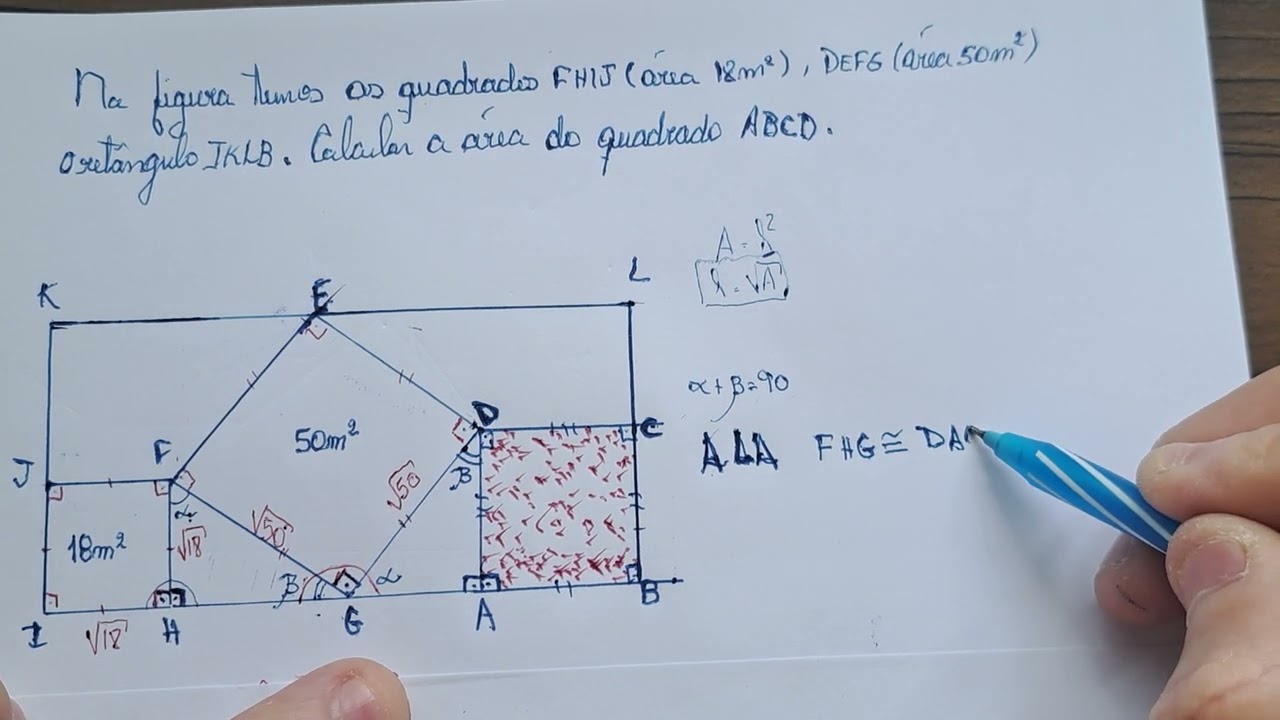 Na figura temos os quadrados FHIJ (área 18m²), DEFG (área 50m²)
o retângulo IKLB. Calcular a área do quadrado ABCD.
A = l²
l = √A
K E L
α + β = 90
ALA FHG ≅ DA
D C
50m²
F
J
β
√50
α
18m²
√18
√50
β α
I H G A B
√18